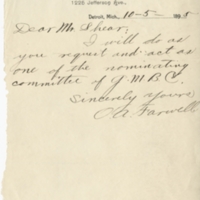 1226 Jefferson Ave.,
Detroit, Mich., 10-5- 1895
Dear Mr. Shear:
I will do as
you request and act as
one of the nominating
committee of G.M.B.C.
Sincerely Yours
O.A. Farwell